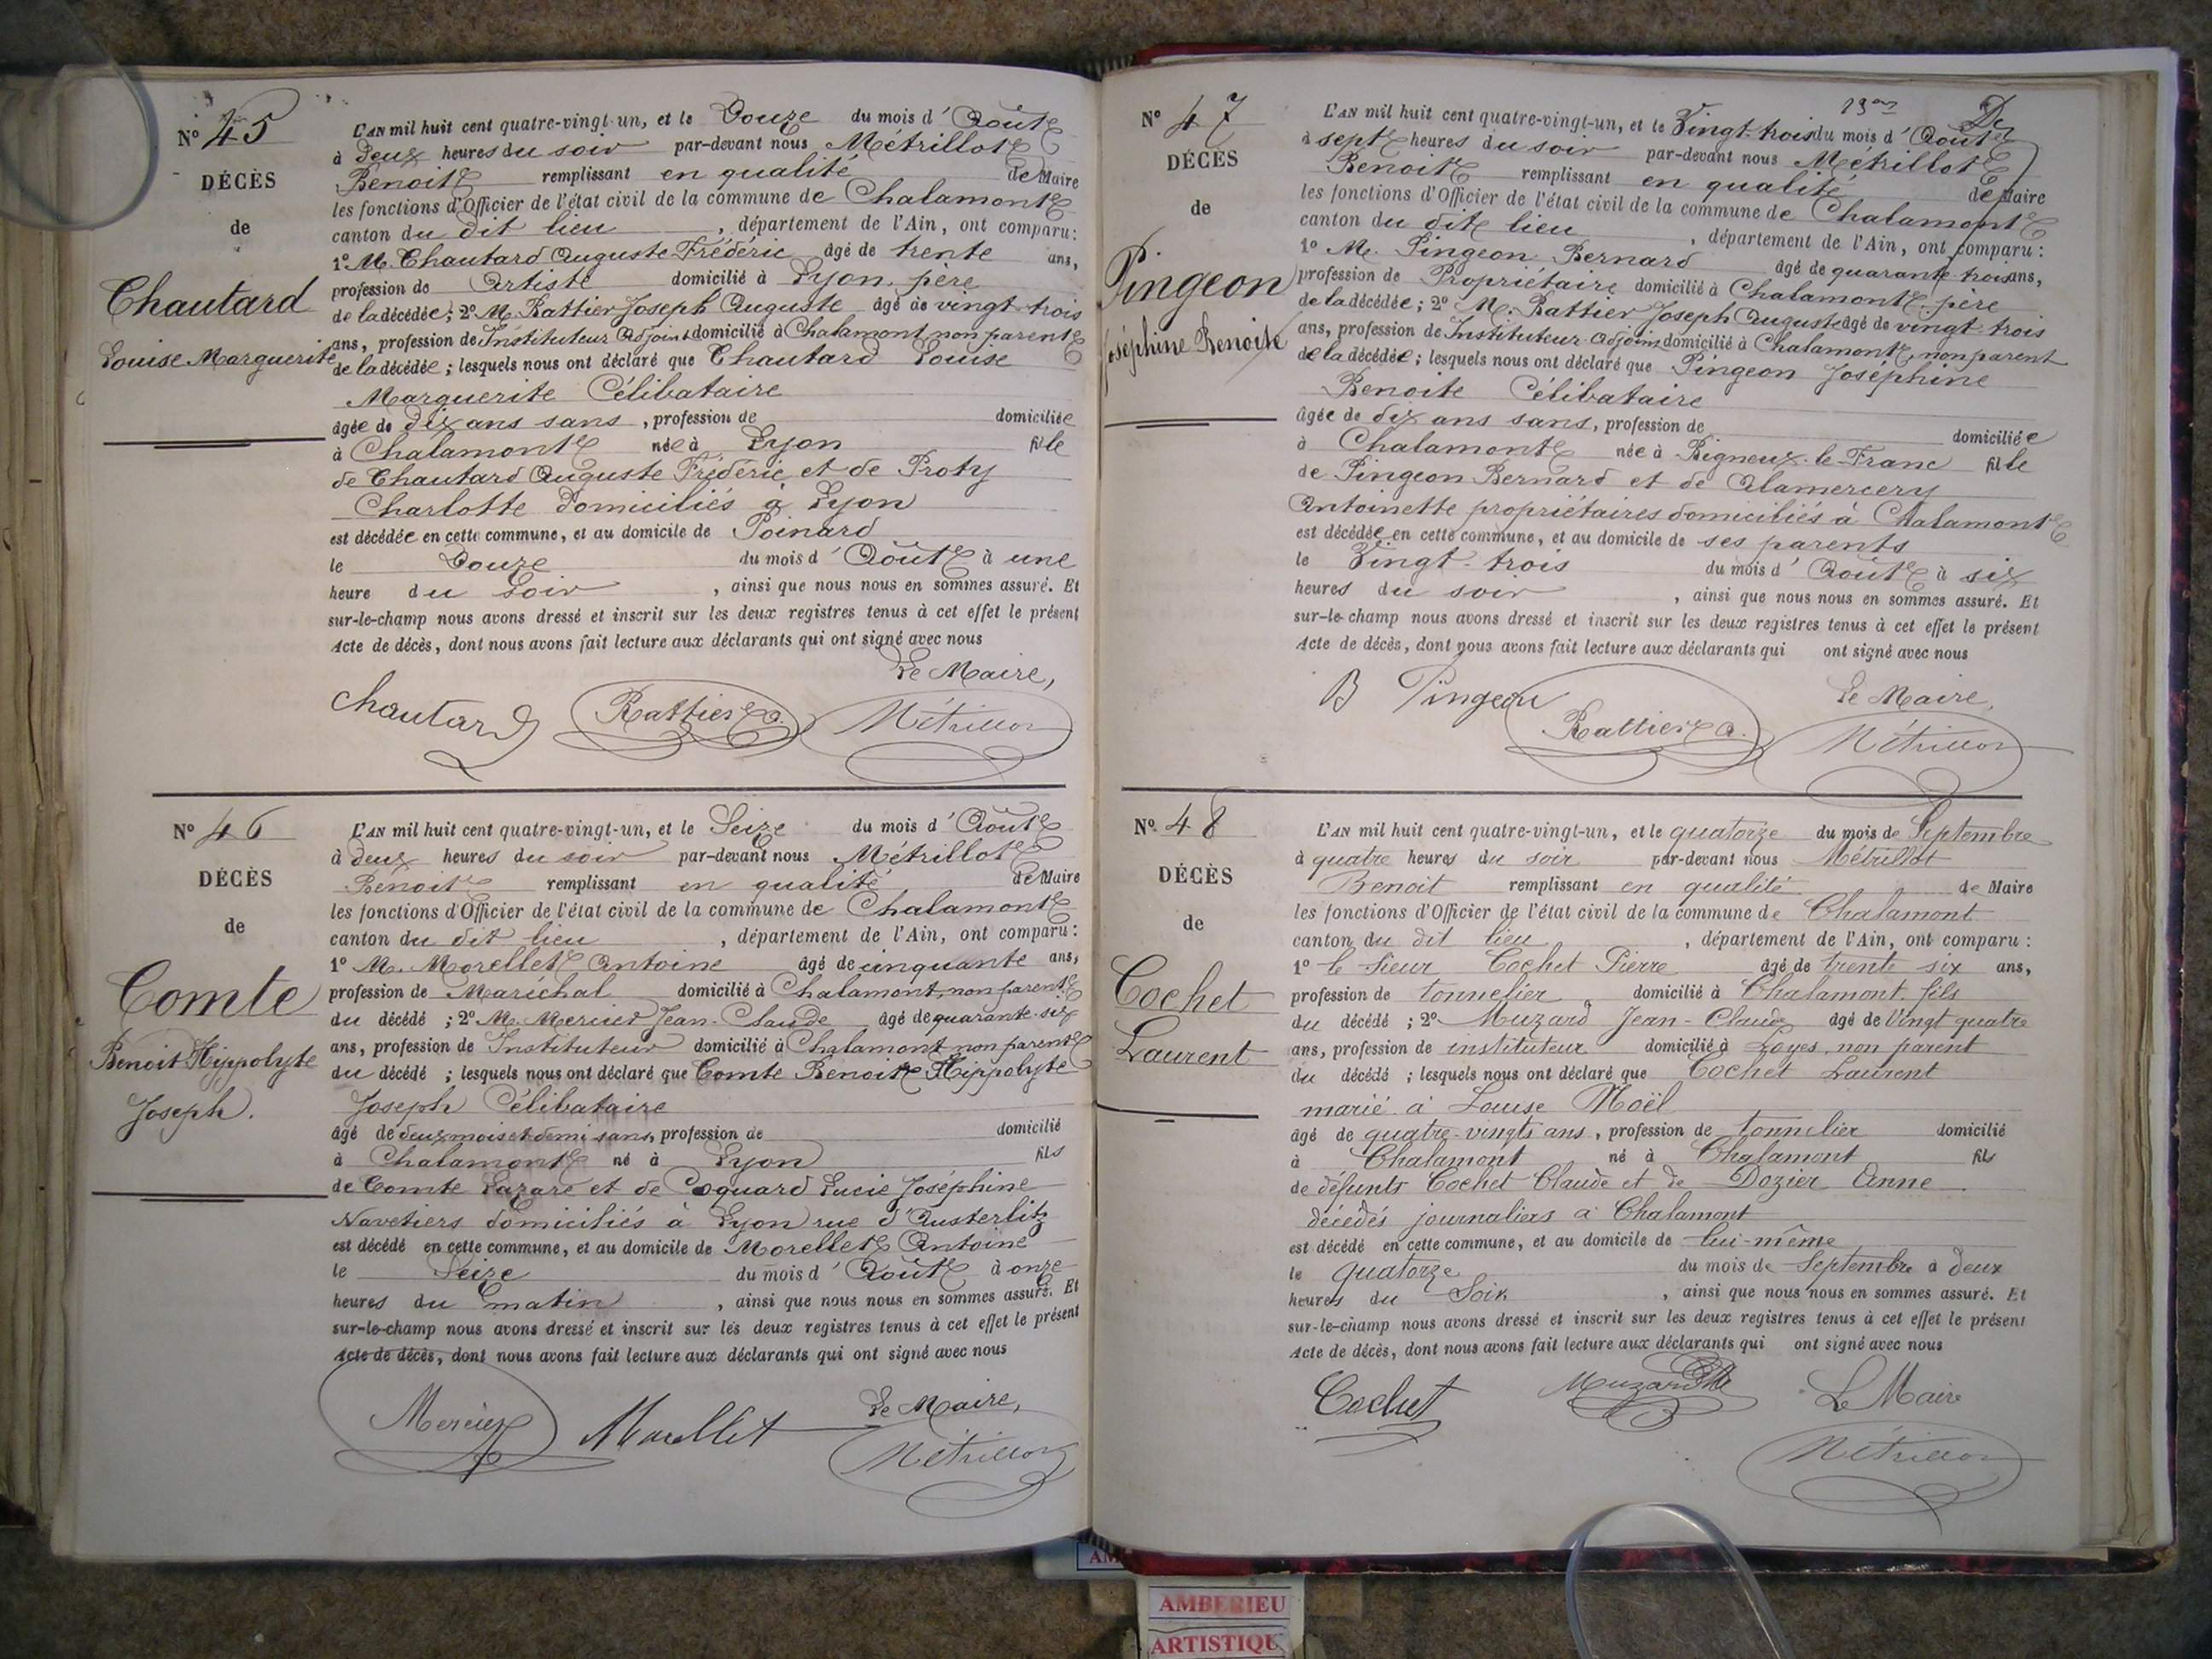 Nº 45
DÉCÈS
de
Chautard
Louise Marguerite
L'AN mil huit cent quatre-vingt-un, et le Douze du mois d'Août
à Deux heures du soir par-devant nous Métrillot
Benoit remplissant en qualité de Maire
les fonctions d'Officier de l'état civil de la commune de Chalamont
canton du dit lieu, département de l'Ain, ont comparu:
1º M. Chautard Auguste Frédéric âgé de trente ans,
profession de Artiste domicilié à Lyon, père
de la décédée; 2º M. Rattier Joseph Auguste âgé de vingt trois
ans, profession de Instituteur Adjoint domicilié à Chalamont non parent
de la décédée; lesquels nous ont déclaré que Chautard Louise
Marguerite Célibataire
âgée de dix ans sans, profession de domiciliée
à Chalamont née à Lyon fille
de Chautard Auguste Frédéric et de Proty
Charlotte domiciliés à Lyon
est décédée en cette commune, et au domicile de Poinard
le Douze du mois d'Août à une
heure du soir, ainsi que nous nous en sommes assuré. Et
sur-le-champ nous avons dressé et inscrit sur les deux registres tenus à cet effet le présent
Acte de décès, dont nous avons fait lecture aux déclarants qui ont signé avec nous
Le Maire,
Chautard Rattier a. Métrillot
Nº 46
DÉCÈS
de
Comte
Benoit Hippolyte
Joseph.
L'AN mil huit cent quatre-vingt-un, et le Seize du mois d'Août
à deux heures du soir par-devant nous Métrillot
Benoit remplissant en qualité de Maire
les fonctions d'Officier de l'état civil de la commune de Chalamont
canton du dit lieu, département de l'Ain, ont comparu:
1º M. Morellet Antoine âgé de cinquante ans,
profession de Maréchal domicilié à Chalamont, non parent
du décédé; 2º M. Mercier Jean-Claude âgé de quarante-six
ans, profession de Instituteur domicilié à Chalamont non parent
du décédé; lesquels nous ont déclaré que Comte Benoit Hippolyte
Joseph Célibataire
âgé de deux mois et demi sans, profession de domicilié
à Chalamont né à Lyon fils
de Comte Lazare et de Coquard Lucie Joséphine
Navetiers domiciliés à Lyon rue d'Austerlitz
est décédé en cette commune, et au domicile de Morellet Antoine
le Seize du mois d'Août à onze
heures du matin, ainsi que nous nous en sommes assuré. Et
sur-le-champ nous avons dressé et inscrit sur les deux registres tenus à cet effet le présent
Acte de décès, dont nous avons fait lecture aux déclarants qui ont signé avec nous
Le Maire,
Mercier Morellet Métrillot
Nº 47
DÉCÈS
de
Pingeon
Joséphine Benoite
L'AN mil huit cent quatre-vingt-un, et le Vingt-trois du mois d'Août
à sept heures du soir par-devant nous Métrillot
Benoit remplissant en qualité de Maire
les fonctions d'Officier de l'état civil de la commune de Chalamont
canton du dit lieu, département de l'Ain, ont comparu:
1º M. Pingeon Bernard âgé de quarante-trois ans,
profession de Propriétaire domicilié à Chalamont, père
de la décédée; 2º M. Rattier Joseph Auguste âgé de vingt trois
ans, profession de Instituteur-Adjoint domicilié à Chalamont, non parent
de la décédée; lesquels nous ont déclaré que Pingeon Joséphine
Benoite Célibataire
âgée de dix ans sans, profession de domiciliée
à Chalamont née à Rigneux-le-Franc fille
de Pingeon Bernard et de Alamercery
Antoinette propriétaires domiciliés à Chalamont
est décédée en cette commune, et au domicile de ses parents
le Vingt-trois du mois d'Août à six
heures du soir, ainsi que nous nous en sommes assuré. Et
sur-le-champ nous avons dressé et inscrit sur les deux registres tenus à cet effet le présent
Acte de décès, dont nous avons fait lecture aux déclarants qui ont signé avec nous
B Pingeon Rattier a. Le Maire,
Métrillot
Nº 48
DÉCÈS
de
Cochet
Laurent
L'AN mil huit cent quatre-vingt-un, et le quatorze du mois de Septembre
à quatre heures du soir par-devant nous Métrillot
Benoit remplissant en qualité de Maire
les fonctions d'Officier de l'état civil de la commune de Chalamont
canton du dit lieu, département de l'Ain, ont comparu:
1º le sieur Cochet Pierre âgé de trente six ans,
profession de tonnelier domicilié à Chalamont fils
du décédé; 2º Muzard Jean-Claude âgé de Vingt quatre
ans, profession de instituteur domicilié à Loyes, non parent
du décédé; lesquels nous ont déclaré que Cochet Laurent
marié à Louise Moël
âgé de quatre-vingts ans, profession de tonnelier domicilié
à Chalamont né à Chalamont fils
de défunts Cochet Claude et de Dozier Anne
décédés journaliers à Chalamont
est décédé en cette commune, et au domicile de lui-même
le quatorze du mois de Septembre à deux
heures du Soir, ainsi que nous nous en sommes assuré. Et
sur-le-champ nous avons dressé et inscrit sur les deux registres tenus à cet effet le présent
Acte de décès, dont nous avons fait lecture aux déclarants qui ont signé avec nous
Cochet Muzard Le Maire
Métrillot
AMBERIEU
ARTISTIQU